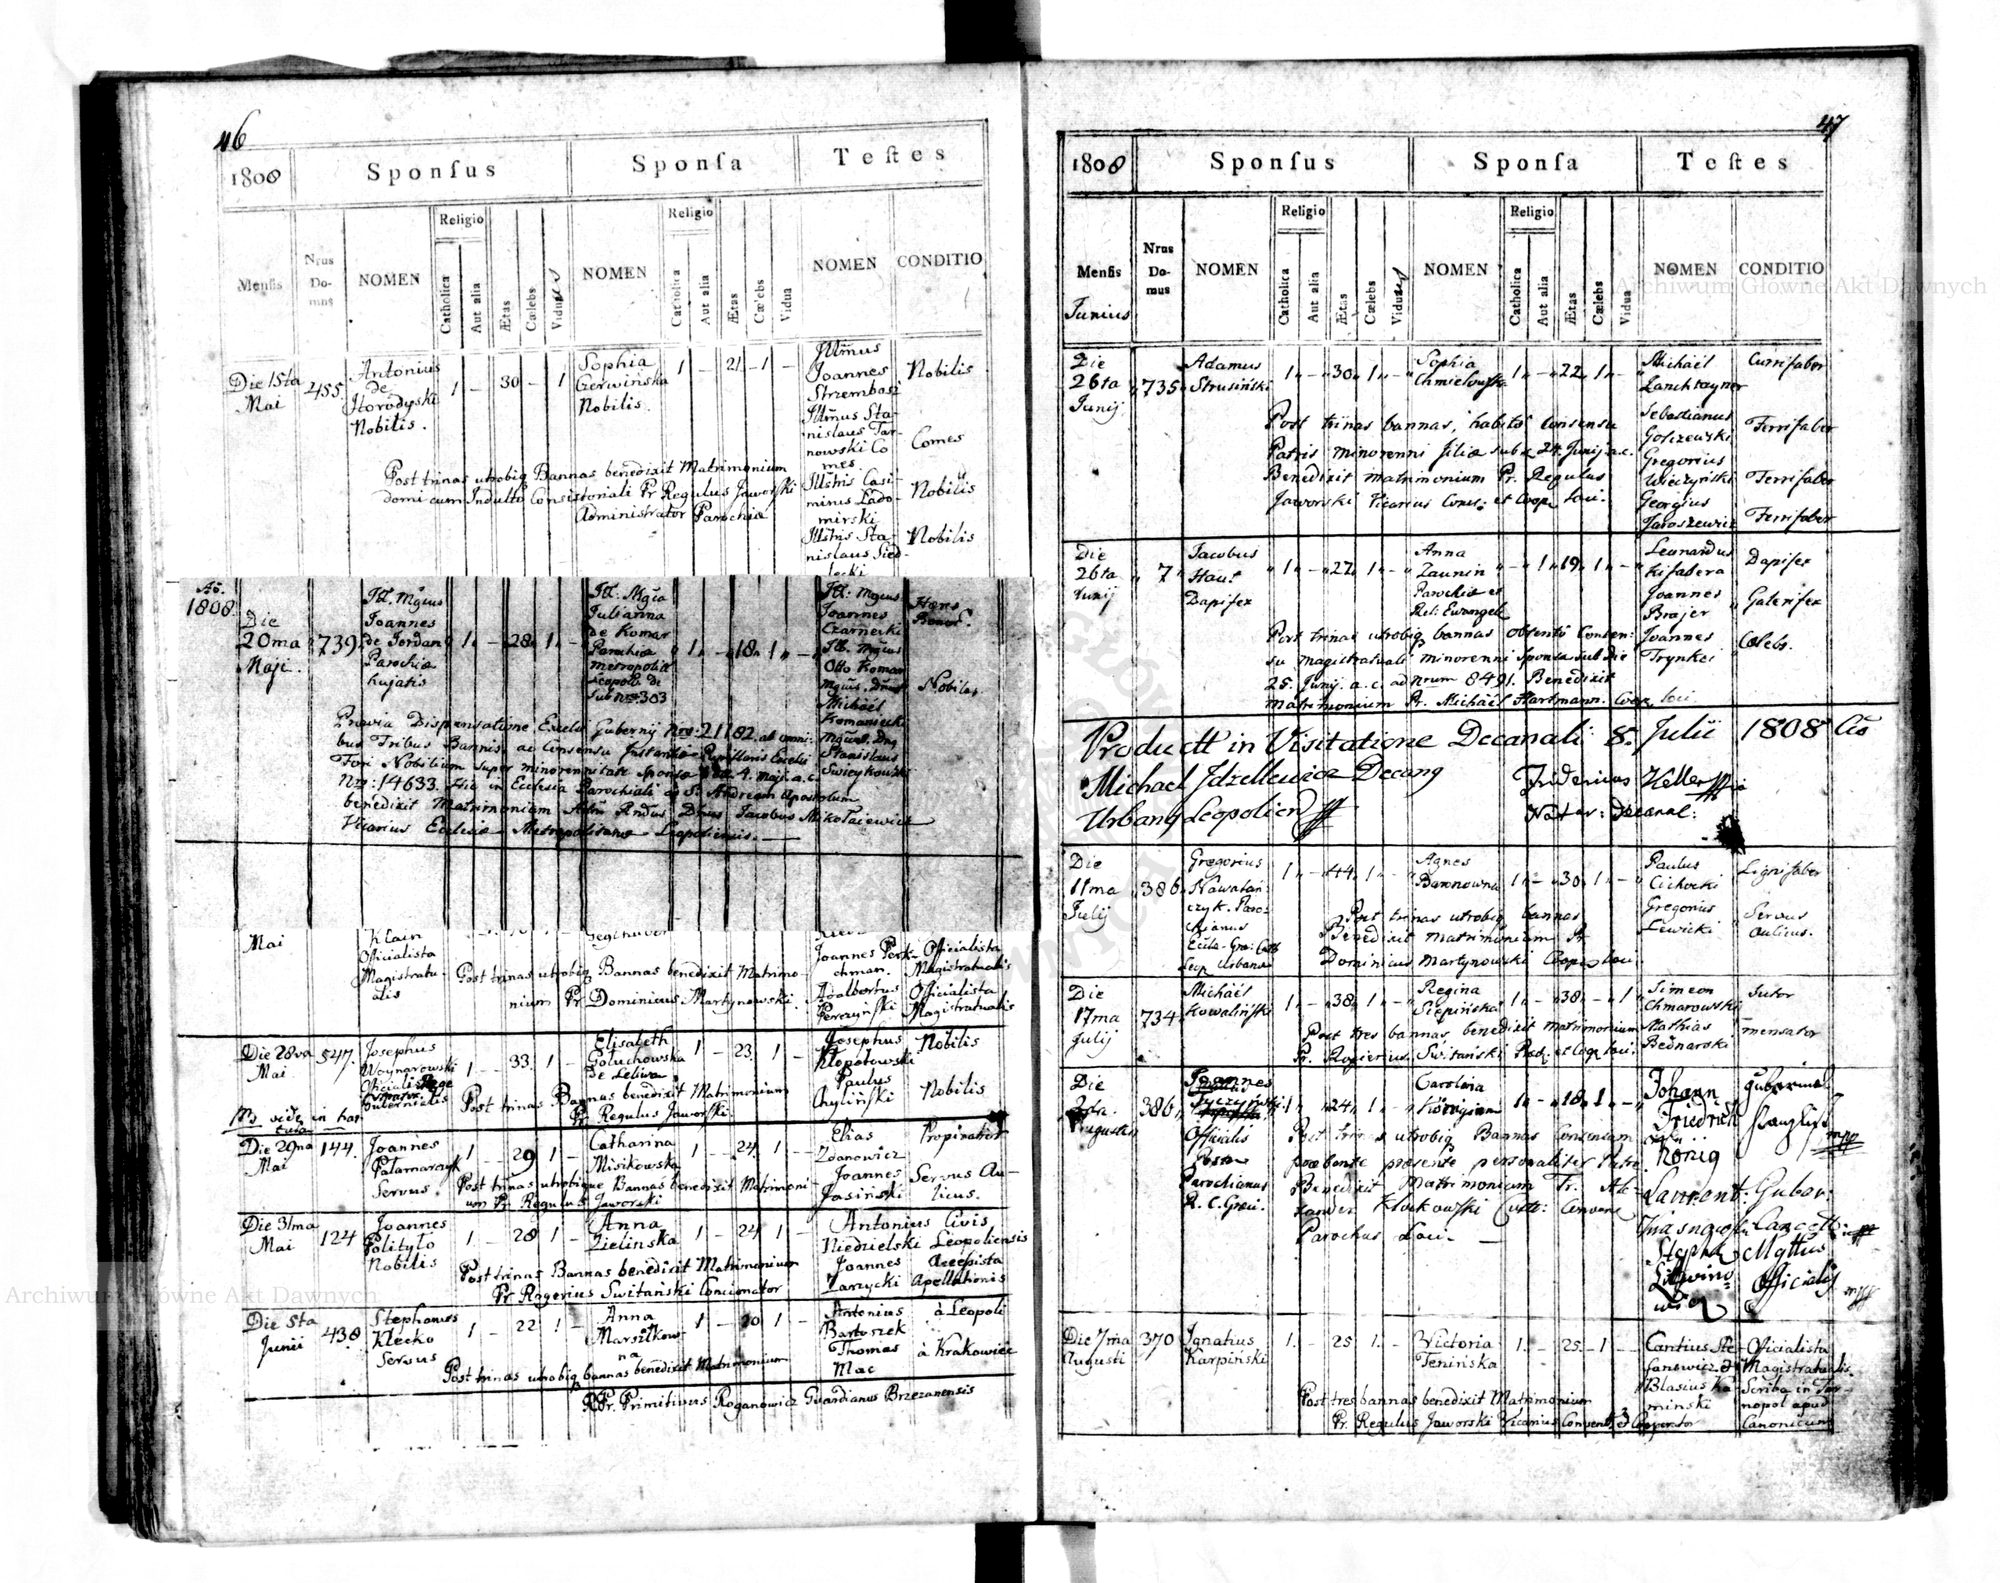 46
1808
Sponsus
Sponsa
Testes
Mensis
Nrus Domus
NOMEN
Religio
Catholica
Aut alia
Ætas
Cælebs
Viduus
NOMEN
Religio
Catholica
Aut alia
Ætas
Cælebs
Vidua
NOMEN
CONDITIO
Die 15ta Mai
455
Antonius
de
Horodyski
Nobilis.
1 – 30 – 1
Sophia
Gerwińska
Nobilis.
1 – 21 – 1 –
Illmus
Joannes
Strzembosz
Nobilis
Illmus Sta-
nislaus Tar-
nowski Co-
mes.
Comes
Illstris Casi-
mirus Lado-
mirski
Nobilis
Illstris Sta-
nislaus Sied-
lecki
Nobilis
Post trinas utrobiq Bannas benedixit Matrimonium
domi cum Indulto Consistoriali Pr Regulus Jaworski
Administrator Parochiæ
Aō.
1808.
Die
20ma
Maji.
739
Ill. Mgnus
Joannes
de Jordan
Parochiæ
hujatis
1 – 28 1 –
Ill: Mgna
Julianna
de Komar
Parochiæ
metropolit
Leopol: de
sub Nro 303
1 – 18 1 –
Ill: Mgnus
Joannes
Czarnecki
Ill. Mgnus
Otto Komar
Michael
Komarnicki
Stanislaus
Swieykowski
Hæres
Bonor.
Nobiles
Prævia Dispensatione Excelsi Gubernij Nro: 21182. ab omni-
bus Tribus Bannis, ac Consensu Instantiæ Pupillaris Excelsi
Fori Nobilium super minorennitate Sponsæ dtt. 4. Maji. a. c.
Nro: 14633. Hic in Ecclesia Parochiali ad S. Andream Apostolum
benedixit Matrimonium Adm Rndus Dnus Jacobus Mikolaiewicz
Vicarius Ecclesiæ Metropolitanæ Leopoliensis.
Mai
Klain
Officialista
Magistratu-
alis
Joannes Perk-
chman.
Officialista
Magistratualis
Adalbertus
Perczyński
Officialista
Magistratualis
Post trinas utrobiq Bannas benedixit Matrimo-
nium Pr Dominicus Martynowski.
Die 28va
Mai
547.
Josephus
Woynarowski
Officialista
Gubernialis
1 – 33. 1 –
Elisabeth
Gołuchowska
de Leliwa.
1 – 23. 1 –
Josephus
Kłopotowski
Nobilis
Paulus
Chyliński
Nobilis
Post trinas Bannas benedixit Matrimonium
Pr Regulus Jaworski.
Die 29na
Mai
144.
Joannes
Palamarczyk
Servus.
1 – 29 1 –
Catharina
Misikowska
1 – 24. 1 –
Elias
Zdanowicz
Propinator
Joannes
Jasiński
Servus Au-
licus.
Post trinas utrobique Bannas benedixit Matrimoni-
um Pr Regulus Jaworski
Die 31ma
Mai
124
Joannes
Polityło
Nobilis
1 – 28 1 –
Anna
Zielinska
1 – 24 1 –
Antonius
Niedzielski
Civis
Leopoliensis
Joannes
Zarzycki
Accesista
Apellationis
Post trinas Bannas benedixit Matrimonium
Pr Rogerius Switański Concionator
Die 5ta
Junii
438.
Stephanus
Klecko
Servus
1 – 22 1 –
Anna
Marszłkow-
na
1 – 20 1 –
Antonius
Bartoszek
à Leopoli
Thomas
Mac
à Krakowiec
Post trinas utrobiq bannas benedixit Matrimonium
RPr. Primitivus Roganowicz Guardianus Brzezanensis
47
1808
Sponsus
Sponsa
Testes
Mensis
Junius
Nrus Domus
NOMEN
Religio
Catholica
Aut alia
Ætas
Cælebs
Viduus
NOMEN
Religio
Catholica
Aut alia
Ætas
Cælebs
Vidua
NOMEN
CONDITIO
Die
26ta
Junij
735
Adamus
Strusiński
1 – 30 1 –
Sophia
Chmielowska
1 – 22 1 –
Michaël
Lanckrayner
Currifaber
Sebastianus
Golczewski
Ferrifaber
Gregorius
Wilczyński
Ferrifaber
Georgius
Jaroszewicz
Ferrifaber
Post trinas bannas, habito consensu
Patris minorenni filiæ sub 24. Junij a.c.
Benedixit matrimonium Pr. Regulus
Jaworski Vicarius Conv: et Coop loci.
Die
26ta
Junij
7
Jacobus
Haus
Dapifex
1 – 27 1 –
Anna
Zaunin
Parochiæ et
Rel: Ewangel
– 1 19 1 –
Leonardus
Kifabera
Dapifex
Joannes
Brajer
Galerifex
Joannes
Trynkei
Cælebs.
Post trinas utrobiq bannas obtento Consen-
su magistratuali minorenni Sponsæ sub die
25. Junij. a. c. ad Nrum 8491. Benedixit
matrimonium Pr. Michaël Hartmann. Coop. loci.
Product in Visitatione Decanali 8. Julii 1808 Cio
Michael Idzellewicz Decang
Urbang Leopolien
Fridericus Keller
Notar: Decanal:
Die
11ma
Julij
386
Gregorius
Nawalań-
czyk. Paro-
chianus
Eccla. Græ: Cath
Leop Urbanæ
1 – 44 1 –
Agnes
Baronowna
1 – 30 1 –
Paulus
Cichocki
Lignifaber
Gregorius
Lewicki
Servus
Aulicus.
Post trinas utrobiq bannas
Benedixit matrimonium Pr
Dominicus Martynowski Coop loci.
Die
17ma
Julij
734
Michaël
Kowaliński
1 – 38 1 –
Regina
Siepińska
1 – 38 – 1
Simeon
Chmarowski
Sutor
Mathias
Bednarski
mensator
Post tres bannas, benedixit matrimonium
Pr. Rogierius Switański Præd. et Coop loci.
Die
2da
Augusti
386
Joannes
Officialis
Postæ
Parochianus
R. C. Græci.
1 – 24 1 –
Carolina
Königin
1 – 18 1 –
Johann
Friedrich
König
Gubernial
Kanzlist mpp
Laurent:
Gubor:
Stephan
Litwino-
wicz
Officialis mpp
Post trinas utrobiq Bannas Consensum
præbente præsente personaliter Patre
Benedixit Matrimonium Fr. Ale-
xander Klockowski
Parochus Loci.
Die 7ma
Augusti
370
Ignatius
Karpiński
1. – 25 1. –
Victoria
Tenińska
1. – 25. – 1 –
Cantius Ste-
fanowicz et
Officialista
Magistratualis.
Blasius Ka-
minski
Scriba in Tar-
nopol apud
Canonicum
Post tres bannas benedixit Matrimonium
Pr. Regulus Jaworski Vicarius Convent. et Cooperator
Archiwum Główne Akt Dawnych
Archiwum Główne Akt Dawnych